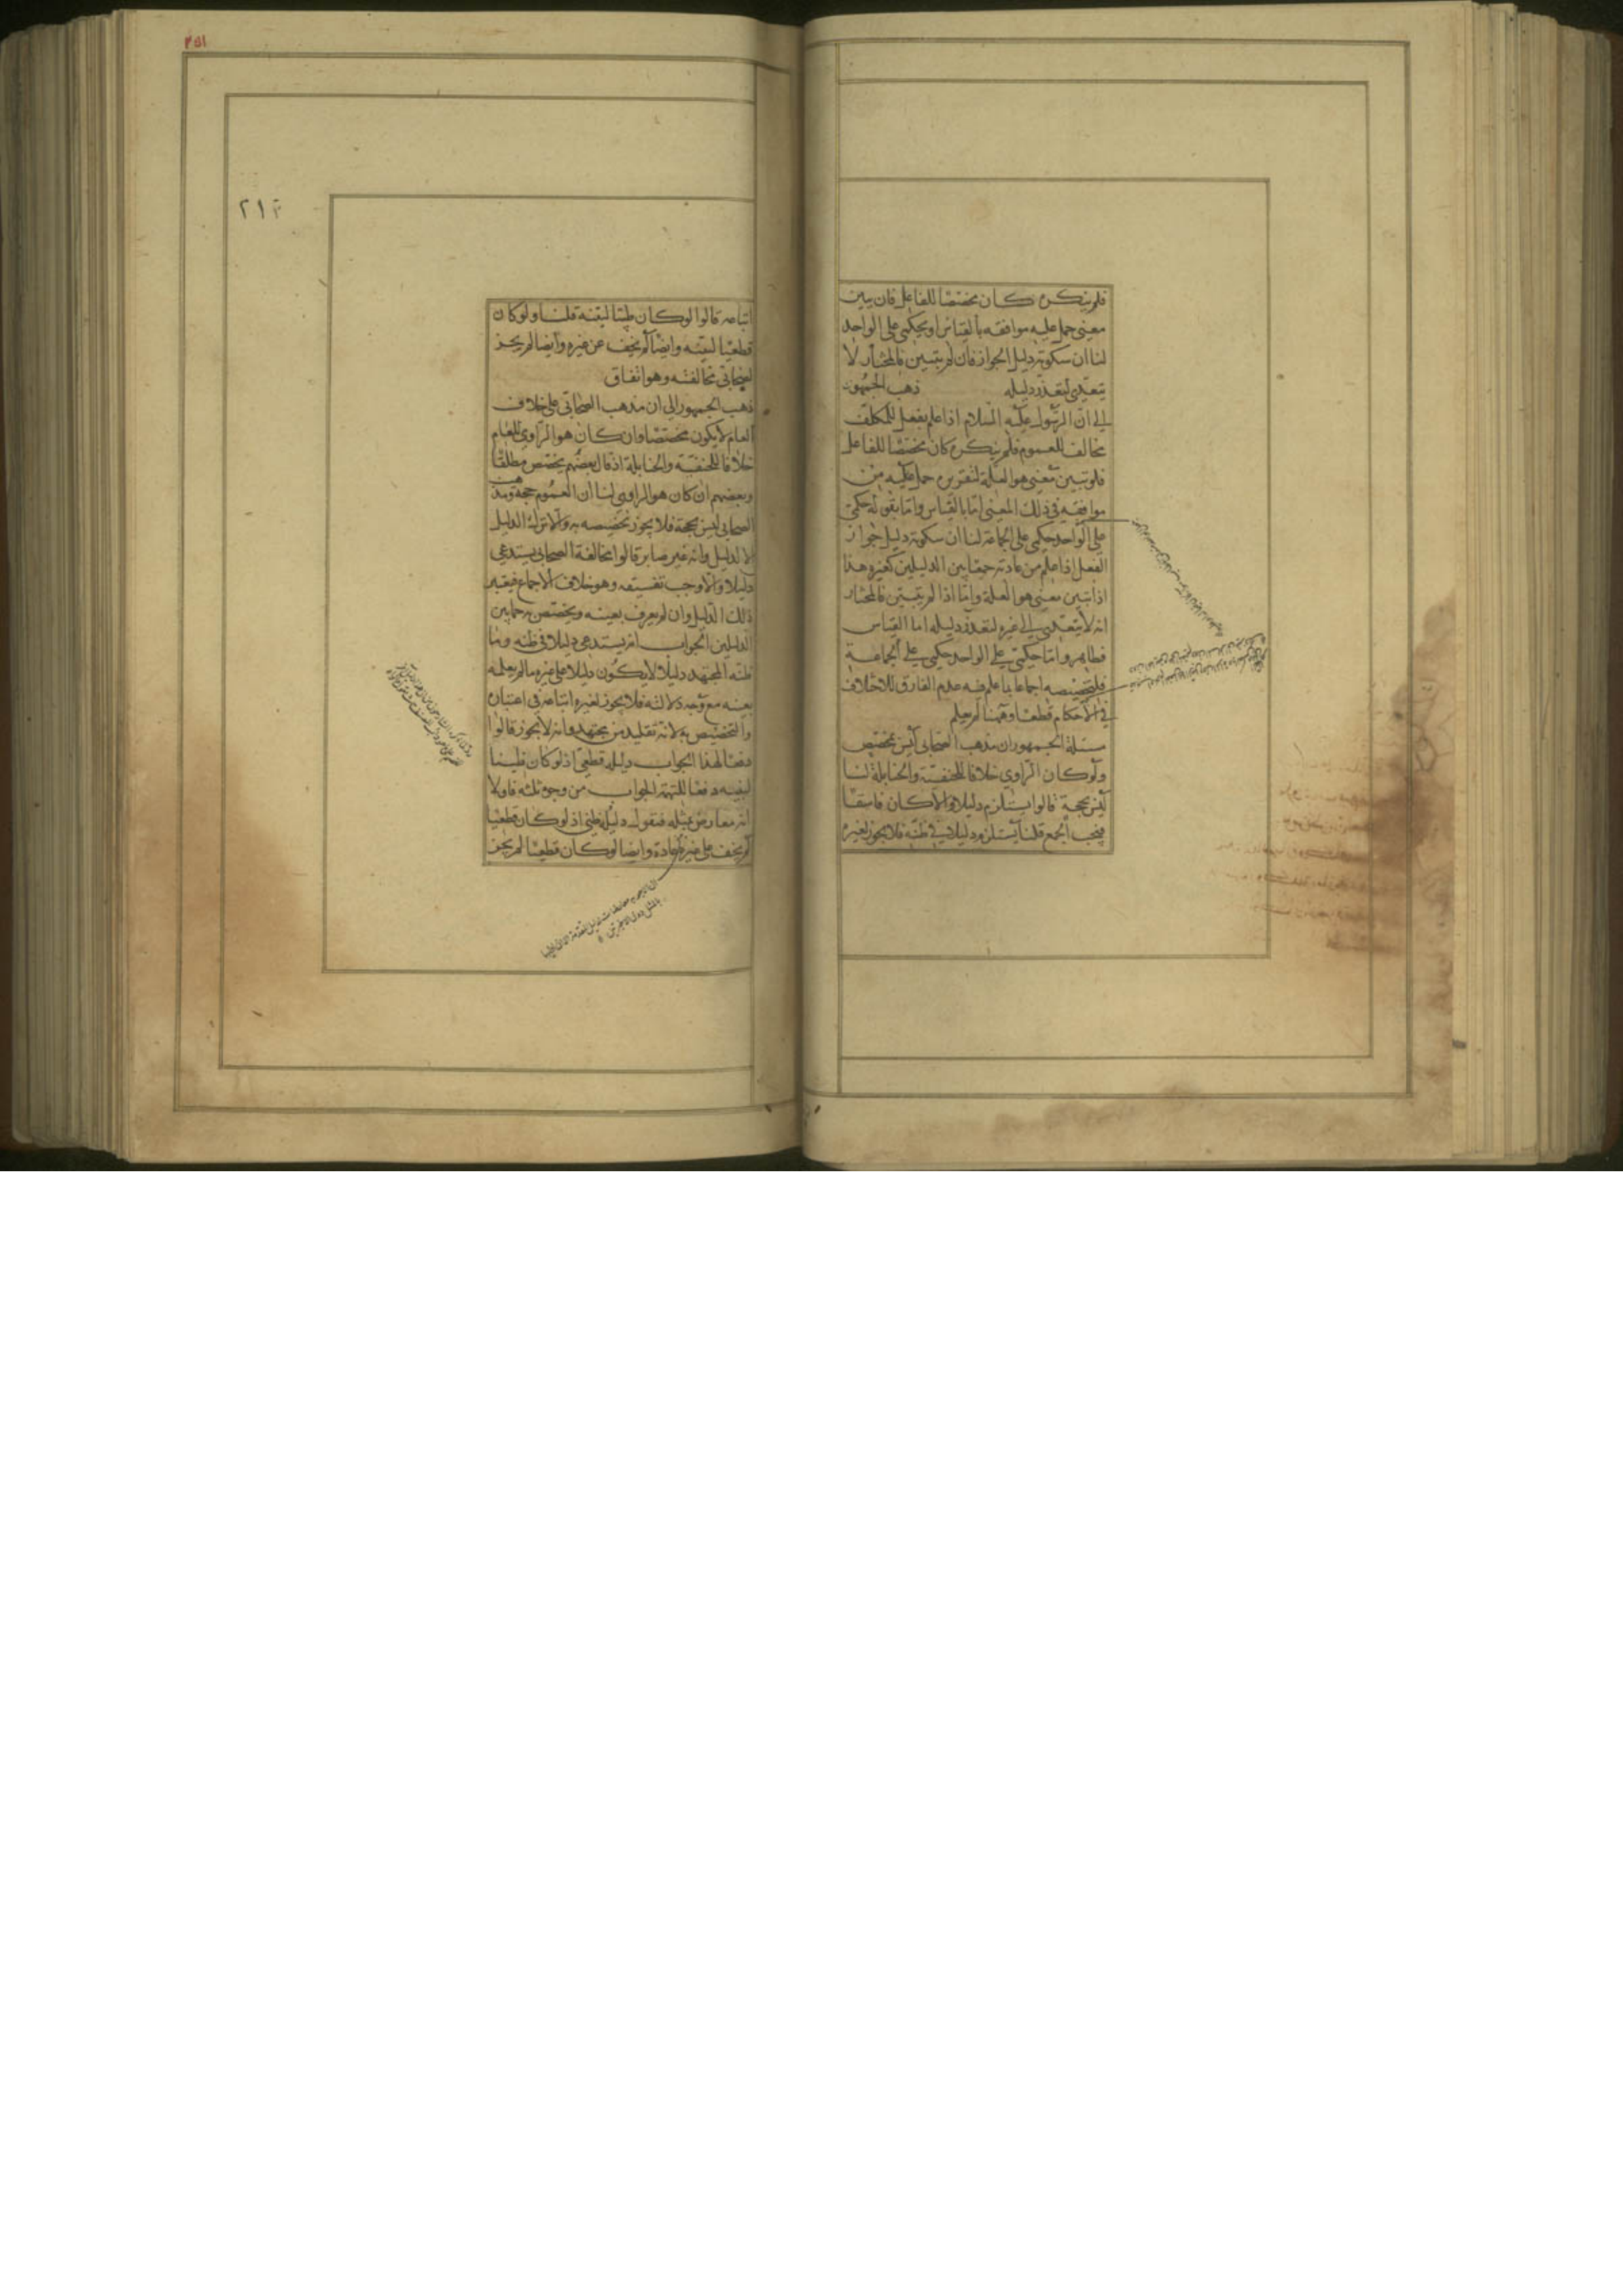 فلم ينكره كان مخصصا للفاعل فان تبين
معنى حمل عليه موافقه بالقياس او بحكمي على الواحد
لنا ان سكوته دليل الجواز فان لم يتبين فالمختار لا
يتعدى لتعذر دليله ذهب الجمهور
الى ان الرسول عليه السلام اذا علم بفعل للمكلف
مخالف للعموم فلم ينكره كان مخصصا للفاعل
فلو تبين معنى هو العلة لتقريره حمل عليه من
موافقه في ذلك المعنى اما بالقياس واما بقوله حكمي
على الواحد حكمي على الجماعة لنا ان سكوته دليل جواز
الفعل اذا علم من عادته جمعا بين الدليلين كغيره هذا
اذا تبين معنى هو العلة واما اذا لم يتبين فالمختار
انه لا يتعدى الى غيره لتعذر دليله اما القياس
فظاهر واما حكمي على الواحد حكمي على الجماعة
فلتخصيصه اجماعا بما علم فيه عدم الفارق للاختلاف
في الاحكام قطعا وههنا لم يعلم
مسئلة الجمهور ان مذهب الصحابي ليس بمخصص
ولو كان الراوي خلافا للحنفية والحنابلة لنا
ليس بحجة قالوا يستلزم دليلا والا كان فاسقا
فيجب الجمع قلنا يستلزم دليلا في ظنه فلا يجوز لغيره
٢٥١
٢١٢
اتباعه قالوا لو كان ظنيا لبينه قلنا ولو كان
قطعيا لبينه وايضا لم يخف عن غيره وايضا لم يجز
لصحابي مخالفته وهو اتفاق
ذهب الجمهور الى ان مذهب الصحابي على خلاف
العام لا يكون مخصصا وان كان هو الراوي للعام
خلافا للحنفية والحنابلة اذ قال بعضهم يخصص مطلقا
وبعضهم ان كان هو الراوي لنا ان العموم حجة ومذهب
الصحابي ليس بحجة فلا يجوز تخصيصه به والا ترك الدليل
لا لدليل وانه غير صابر قالوا مخالفة الصحابي يستدعي
دليلا والا وجب تفسيقه وهو خلاف الاجماع فيعتبر
ذلك الدليل وان لم يعرف بعينه ويخصص به جمعا بين
الدليلين الجواب انه يستدعي دليلا في ظنه وما
ظنه المجتهد دليلا لا يكون دليلا على غيره ما لم يعلمه
بعينه مع وجه دلالته فلا يجوز لغيره اتباعه في اعتباره
والتخصيص به لانه تقليد من مجتهد وانه لا يجوز قالوا
دفعا لهذا الجواب دليله قطعي اذ لو كان ظنيا
لبينه دفعا للتهمة الجواب من وجوه ثلثة فاولا
انه معارض بمثله فنقول دليله ظني اذ لو كان قطعيا
لم يخف على غيره عادة وايضا لو كان قطعيا لم يجز